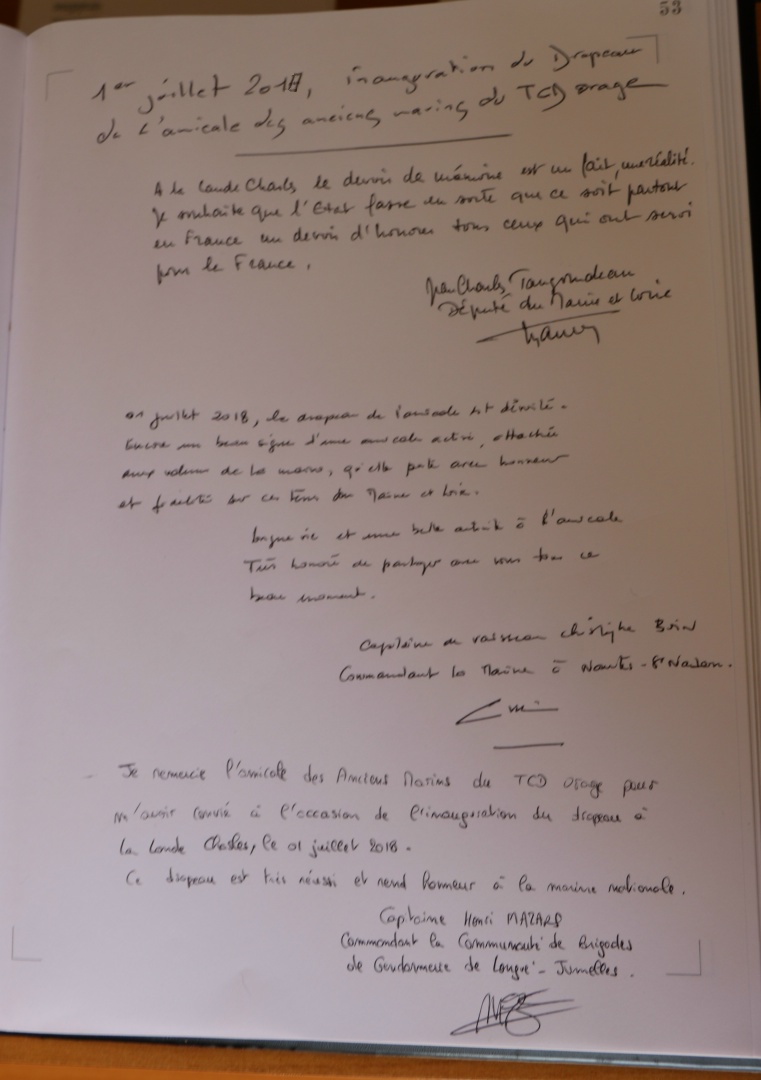 53
1er juillet 2018, inauguration du Drapeau
de l'amicale des anciens marins du TCD orage
A la Lande Charles le devoir de mémoire est un fait, une réalité.
Je souhaite que l'Etat fasse en sorte que ce soit partout
en France un devoir d'honorer tous ceux qui ont servi
pour la France.
Jean Charles Taugourdeau
Député du Maine et Loire
01 juillet 2018, le drapeau de l'amicale est dévoilé.
Encore un beau signe d'une amicale active, attachée
aux valeurs de la marine, qu'elle porte avec honneur
et fidélité sur ces terres du Maine et Loire.
Longue vie et une belle activité à l'amicale
Très honoré de partager avec vous tous ce
beau moment.
Capitaine de vaisseau Christophe
Commandant la Marine à Nantes - St Nazaire.
Je remercie l'amicale des Anciens Marins du TCD Orage pour
m'avoir convié à l'occasion de l'inauguration du drapeau à
la Lande Chasles, le 01 juillet 2018.
Ce drapeau est très réussi et rend honneur à la marine nationale.
Capitaine Henri MAZARS
Commandant la Communauté de Brigades
de Gendarmerie de Longué - Jumelles.